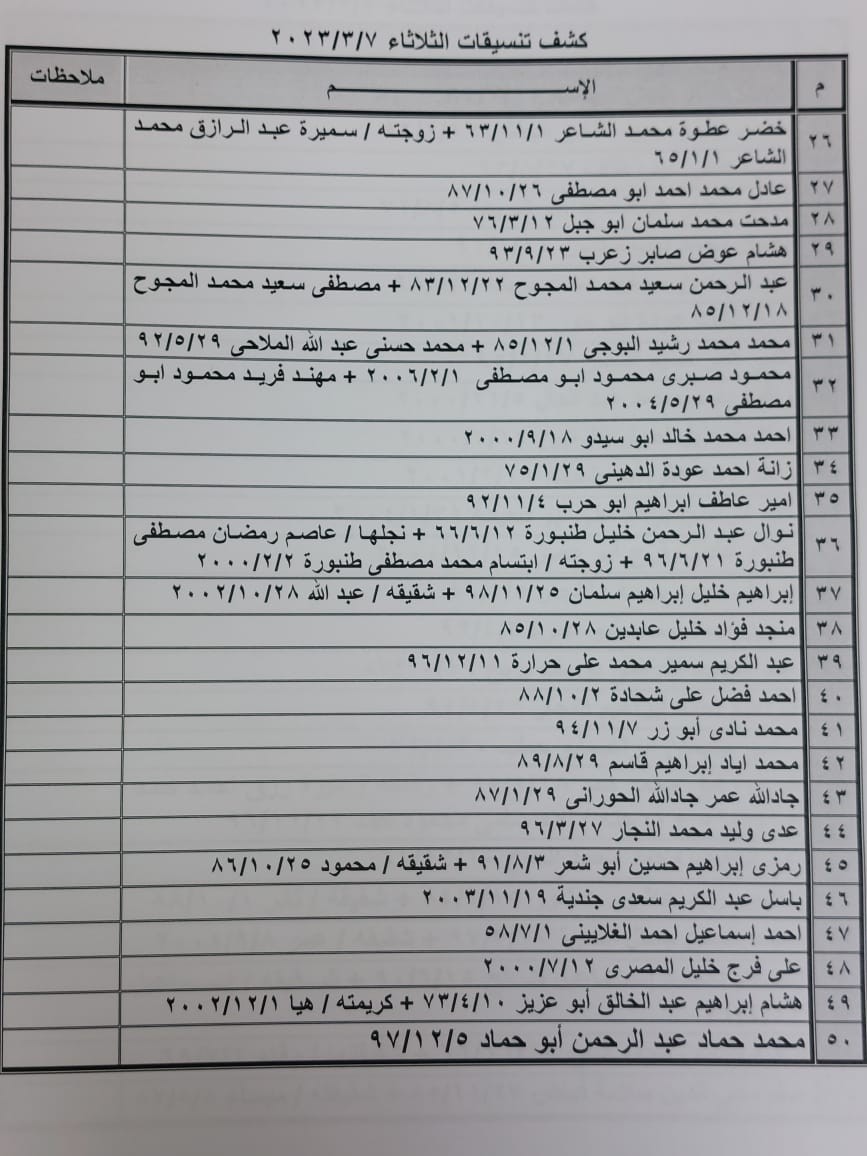 كشف تنسيقات الثلاثاء ٢٠٢٣/٣/٧
م الإســـــم ملاحظات
٢٦ خضر عطوة محمد الشاعر ٦٣/١١/١ + زوجته / سميرة عبد الرازق محمد
الشاعر ٦٥/١/١
٢٧ عادل محمد احمد ابو مصطفى ٨٧/١٠/٢٦
٢٨ مدحت محمد سلمان ابو جبل ٧٦/٣/١٢
٢٩ هشام عوض صابر زعرب ٩٣/٩/٢٣
٣٠ عبد الرحمن سعيد محمد المجوح ٨٣/١٢/٢٢ + مصطفى سعيد محمد المجوح
٨٥/١٢/١٨
٣١ محمد محمد رشيد البوجى ٨٥/١٢/١ + محمد حسنى عبد الله الملاحى ٩٢/٥/٢٩
٣٢ محمود صبرى محمود ابو مصطفى ٢٠٠٦/٢/١ + مهند فريد محمود ابو
مصطفى ٢٠٠٤/٥/٢٩
٣٣ احمد محمد خالد ابو سيدو ٢٠٠٠/٩/١٨
٣٤ زانة احمد عودة الدهينى ٧٥/١/٢٩
٣٥ امير عاطف ابراهيم ابو حرب ٩٢/١١/٤
٣٦ نوال عبد الرحمن خليل طنبورة ٦٦/٦/١٢ + نجلها / عاصم رمضان مصطفى
طنبورة ٩٦/٦/٢١ + زوجته / ابتسام محمد مصطفى طنبورة ٢٠٠٠/٢/٢
٣٧ إبراهيم خليل إبراهيم سلمان ٩٨/١١/٢٥ + شقيقه / عبد الله ٢٠٠٢/١٠/٢٨
٣٨ منجد فؤاد خليل عابدين ٨٥/١٠/٢٨
٣٩ عبد الكريم سمير محمد على حرارة ٩٦/١٢/١١
٤٠ احمد فضل على شحادة ٨٨/١٠/٢
٤١ محمد نادى أبو زر ٩٤/١١/٧
٤٢ محمد اياد إبراهيم قاسم ٨٩/٨/٢٩
٤٣ جادالله عمر جادالله الحورانى ٨٧/١/٢٩
٤٤ عدى وليد محمد النجار ٩٦/٣/٢٧
٤٥ رمزى إبراهيم حسين أبو شعر ٩١/٨/٣ + شقيقه / محمود ٨٦/١٠/٢٥
٤٦ باسل عبد الكريم سعدى جندية ٢٠٠٣/١١/١٩
٤٧ احمد إسماعيل احمد الغلايينى ٥٨/٧/١
٤٨ على فرج خليل المصرى ٢٠٠٠/٧/١٢
٤٩ هشام إبراهيم عبد الخالق أبو عزيز ٧٣/٤/١٠ + كريمته / هيا ٢٠٠٢/١٢/١
٥٠ محمد حماد عبد الرحمن أبو حماد ٩٧/١٢/٥